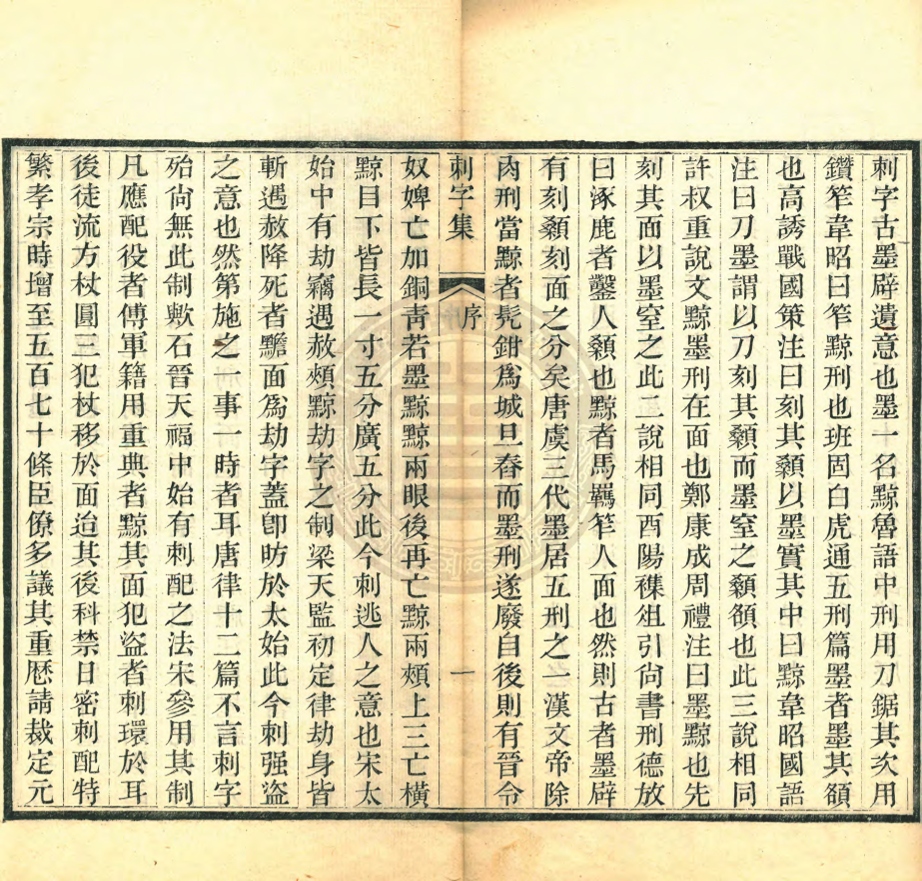 刺字古墨辟遺意也墨一名黥魯語中刑用刀鋸其次用
鑽笮韋昭曰笮黥刑也班固白虎通五刑篇墨者墨其額
也高誘戰國策注曰刻其顙以墨實其中曰黥韋昭國語
注曰刀墨謂以刀刻其顙而墨窒之顙額也此三說相同
許叔重說文黥墨刑在面也鄭康成周禮注曰墨黥也先
刻其面以墨窒之此二說相同酉陽襍俎引尙書刑德放
曰涿鹿者鑿人顙也黥者馬羈笮人面也然則古者墨辟
有刻顙刻面之分矣唐虞三代墨居五刑之一漢文帝除
肉刑當黥者髡鉗爲城旦舂而墨刑遂廢自後則有晉令
刺字集
序
一
奴婢亡加銅靑若墨黥黥兩眼後再亡黥兩頰上三亡橫
黥目下皆長一寸五分廣五分此今刺逃人之意也宋太
始中有劫竊遇赦頰黥劫字之制梁天監初定律劫身皆
斬遇赦降死者黵面爲劫字蓋卽昉於太始此今刺强盜
之意也然第施之一事一時者耳唐律十二篇不言刺字
殆尙無此制歟石晉天福中始有刺配之法宋參用其制
凡應配役者傅軍籍用重典者黥其面犯盜者刺環於耳
後徒流方杖圓三犯杖移於面迨其後科禁日密刺配特
繁孝宗時增至五百七十條臣僚多議其重歷請裁定元